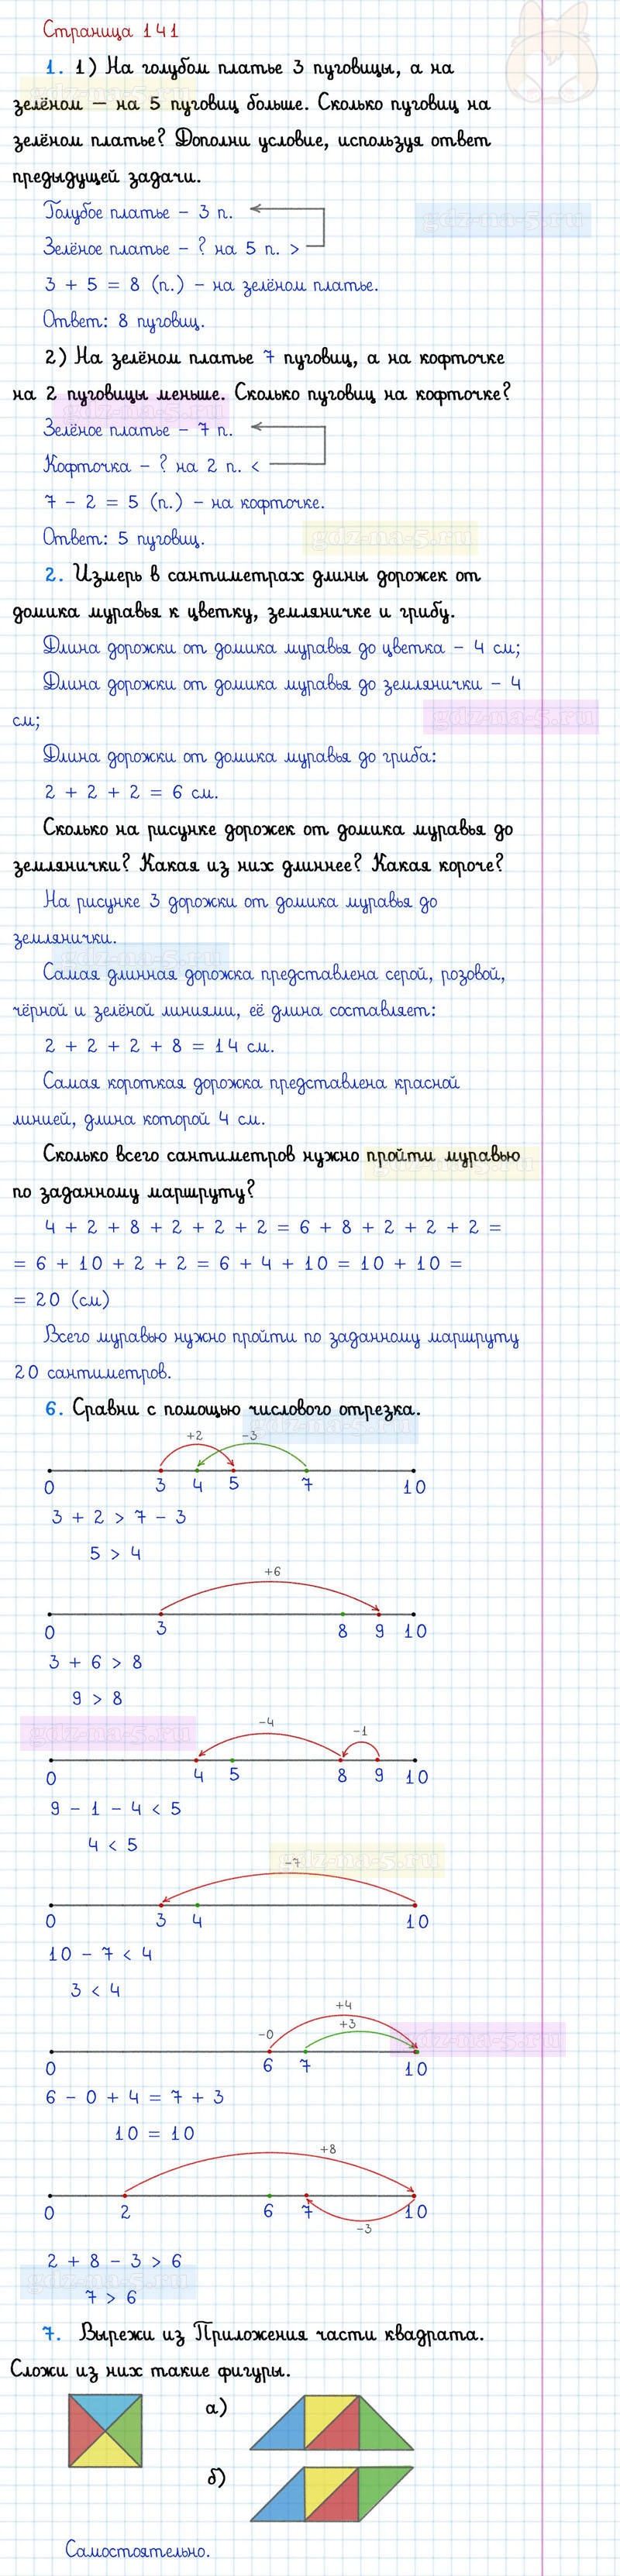 Страница 141
1. 1) На голубом платье 3 пуговицы, а на
зелёном – на 5 пуговиц больше. Сколько пуговиц на
зелёном платье? Дополни условие, используя ответ
предыдущей задачи.
Голубое платье – 3 п.
gdz-na-5.ru
Зелёное платье – ? на 5 п. >
3 + 5 = 8 (п.) – на зелёном платье.
Ответ: 8 пуговиц.
2) На зелёном платье 7 пуговиц, а на кофточке
на 2 пуговицы меньше. Сколько пуговиц на кофточке?
gdz-na-5.ru
Зелёное платье – 7 п.
Кофточка – ? на 2 п. <
7 – 2 = 5 (п.) – на кофточке.
Ответ: 5 пуговиц.
gdz-na-5.ru
2. Измерь в сантиметрах длины дорожек от
домика муравья к цветку, земляничке и грибу.
Длина дорожки от домика муравья до цветка – 4 см;
Длина дорожки от домика муравья до землянички – 4
см;
gdz-na-5.ru
Длина дорожки от домика муравья до гриба:
2 + 2 + 2 = 6 см.
Сколько на рисунке дорожек от домика муравья до
землянички? Какая из них длиннее? Какая короче?
На рисунке 3 дорожки от домика муравья до
землянички.
gdz-na-5.ru
Самая длинная дорожка представлена серой, розовой,
чёрной и зелёной линиями, её длина составляет:
2 + 2 + 2 + 8 = 14 см.
Самая короткая дорожка представлена красной
линией, длина которой 4 см.
Сколько всего сантиметров нужно пройти муравью
gdz-na-5.ru
по заданному маршруту?
4 + 2 + 8 + 2 + 2 + 2 = 6 + 8 + 2 + 2 + 2 =
= 6 + 10 + 2 + 2 = 6 + 4 + 10 = 10 + 10 =
= 20 (см)
Всего муравью нужно пройти по заданному маршруту
20 сантиметров.
6. Сравни с помощью числового отрезка.
gdz-na-5.ru
+2 –3
0 3 4 5 7 10
3 + 2 > 7 – 3
5 > 4
+6
0 3 8 9 10
3 + 6 > 8
9 > 8
gdz-na-5.ru
–4 –1
0 4 5 8 9 10
9 – 1 – 4 < 5
4 < 5
gdz-na-5.ru
–7
0 3 4 10
10 – 7 < 4
3 < 4
+4
+3
–0
gdz-na-5.ru
0 6 7 10
6 – 0 + 4 = 7 + 3
10 = 10
+8
0 2 6 7 10
–3
2 + 8 – 3 > 6
gdz-na-5.ru
7 > 6
7. Вырежи из Приложения части квадрата.
Сложи из них такие фигуры.
а)
б)
Самостоятельно.